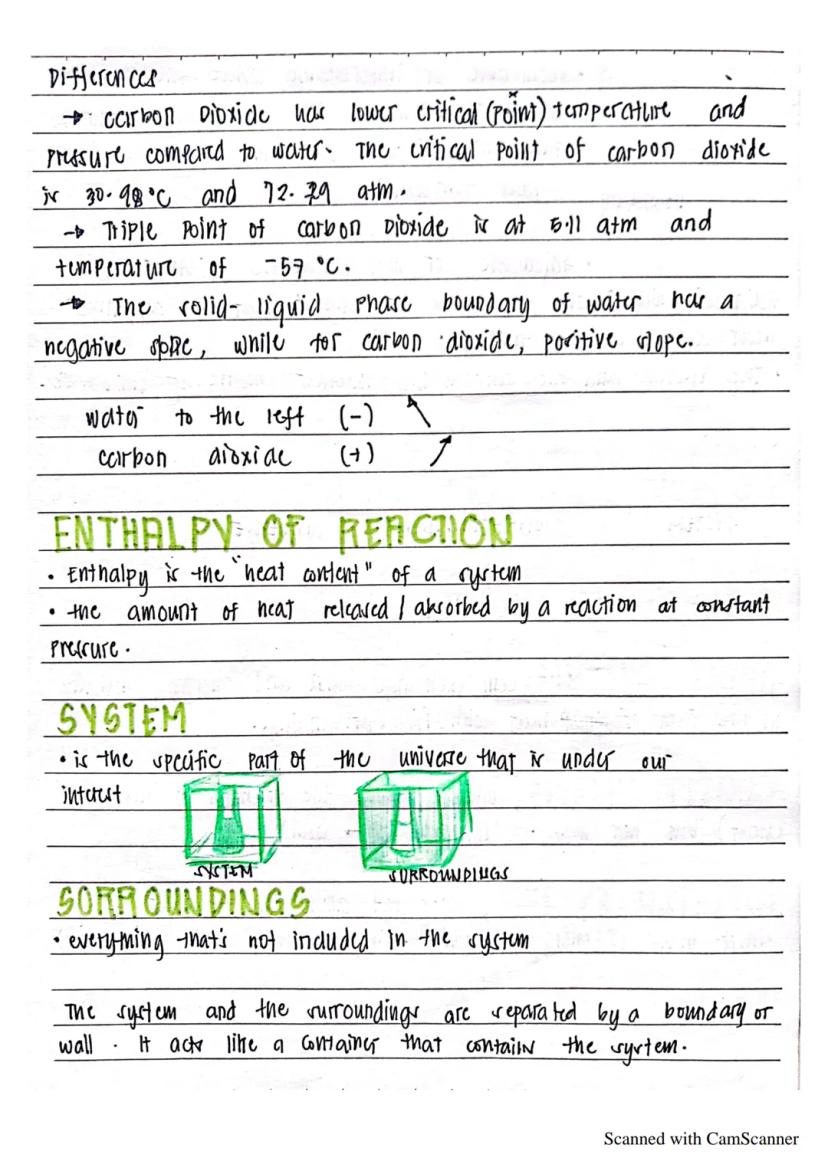 Differences
→ carbon Dioxide has lower critical (point) temperature and
pressure compared to water. The critical point of carbon dioxide
is 30.98°C and 72.79 atm.
→ Triple Point of carbon Dioxide is at 5.11 atm and
temperature of -57 °C.
→ The solid-liquid phase boundary of water has a
negative slope, while for carbon dioxide, positive slope.
water to the left (-) ↖
carbon dioxide (+) ↗
ENTHALPY OF REACTION
• Enthalpy is the "heat content" of a system
• the amount of heat released / absorbed by a reaction at constant
pressure.
SYSTEM
• is the specific part of the universe that is under our
interest
SYSTEM SURROUNDINGS
SORROUNDINGS
• everything that's not included in the system
The system and the surroundings are separated by a boundary or
wall. It acts like a container that contains the system.
Scanned with CamScanner